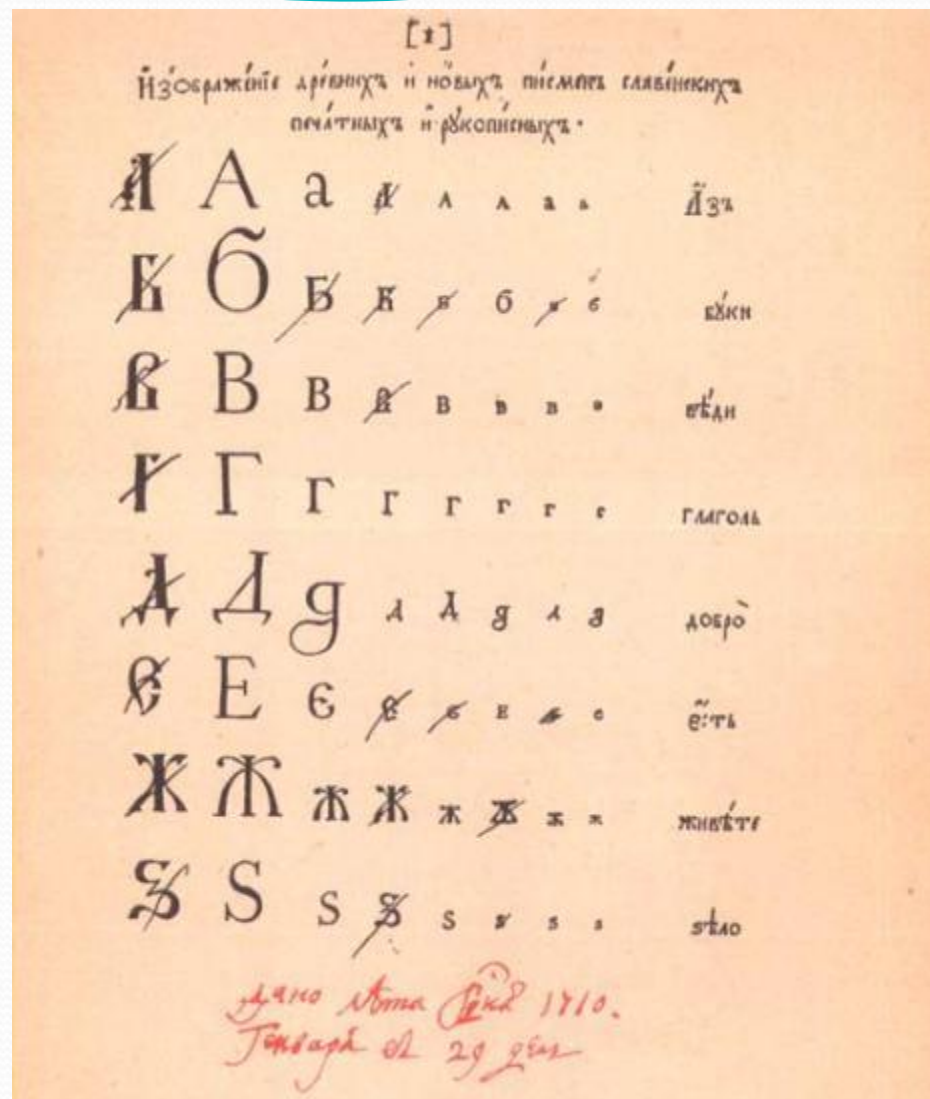 [1]
И҆зѻбраже́нїе дре́внихъ и҆ но́выхъ пи́сменъ славе́нскихъ
печа́тныхъ и҆ рꙋкопи́сныхъ.
А А а А а а а а А҆́зъ
Б Б Б Б б б б б бꙋ́ки
В В В В в в в в вѣ́ди
Г Г г г г г г г глаголь
Д Д д д д д д д добро̀
Є Е є є є е е е є҆́сть
Ж Ж ж ж ж ж ж ж живѣ́те
Ѕ Ѕ ѕ ѕ ѕ ѕ ѕ ѕ ѕѣло
Дано лѣта 1710.
Генваря въ 29 день